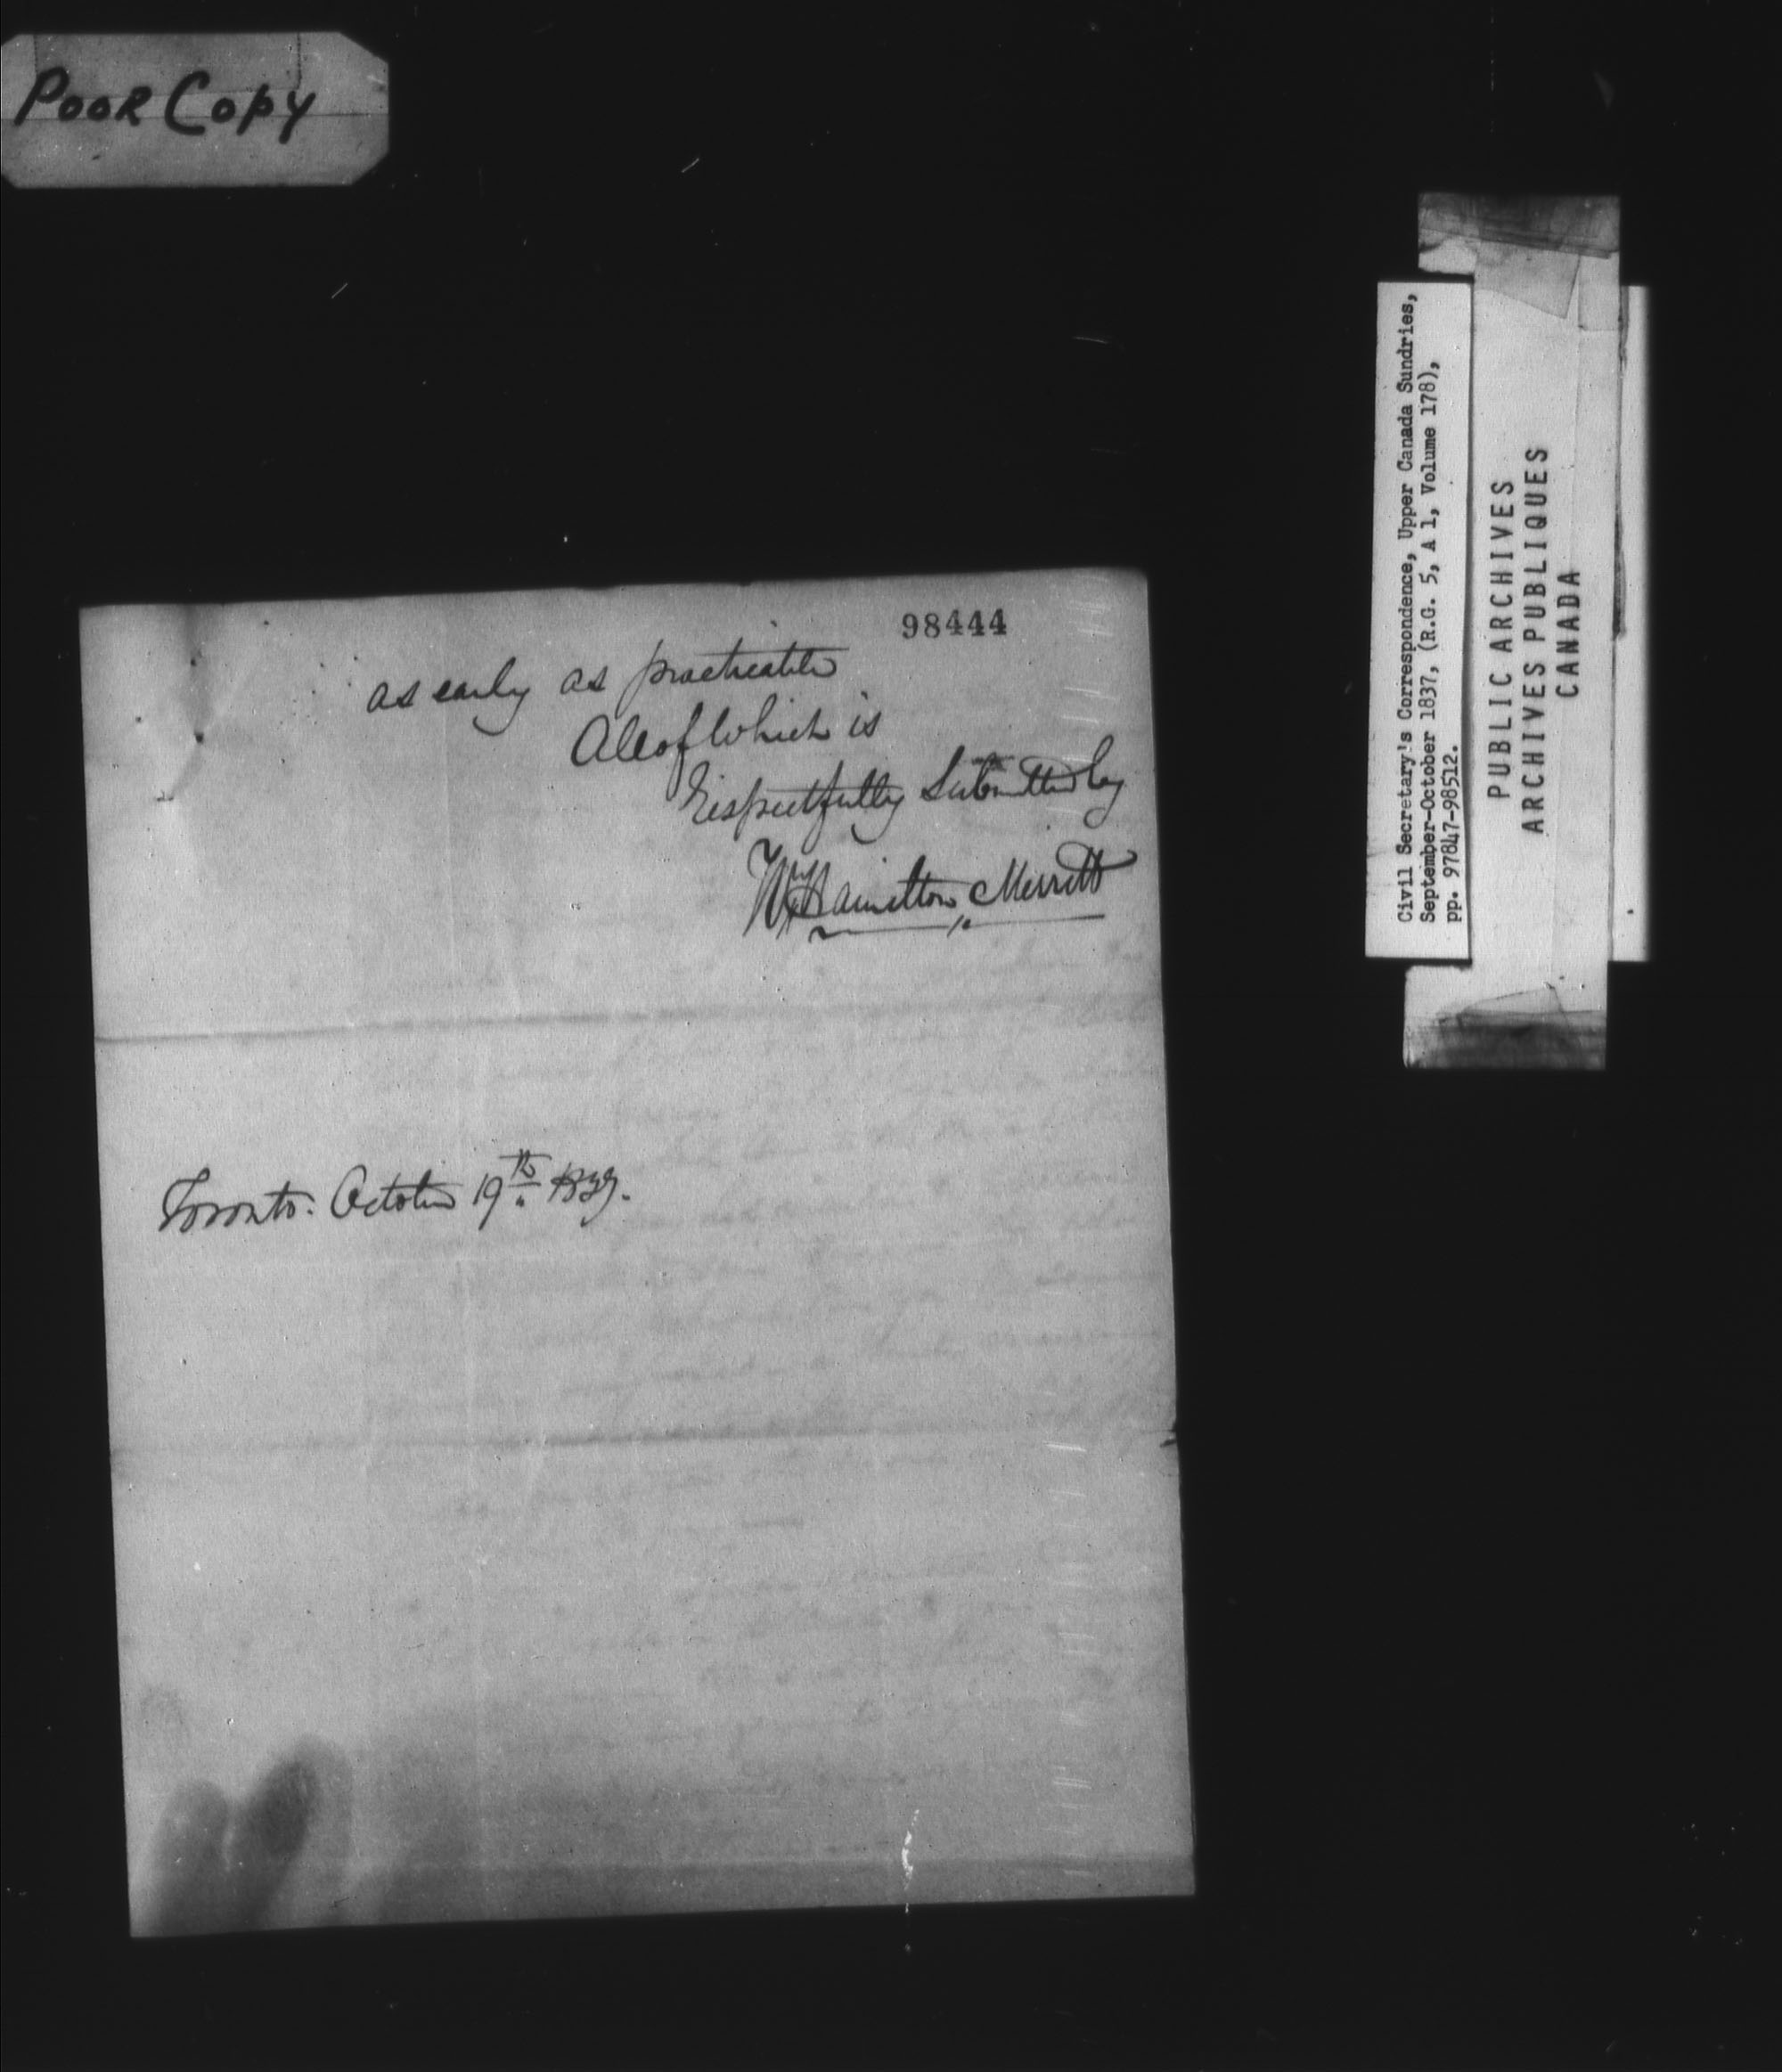 Poor Copy
98444
as early as practicable
All of Which is
Respectfully Submitted by
Wm Hamilton Merritt
Toronto. October 19th 1837.
Civil Secretary's Correspondence, Upper Canada Sundries,
September-October 1837, (R.G. 5, A 1, Volume 178),
pp. 97847-98512.
PUBLIC ARCHIVES
ARCHIVES PUBLIQUES
CANADA